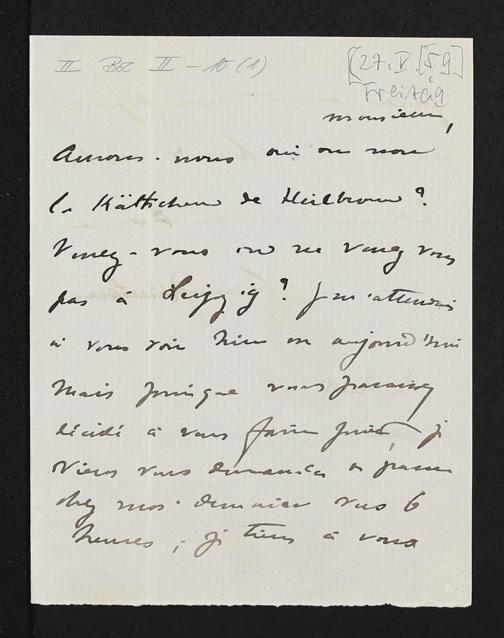 II Bc II - 10 (1)
[27. V. 59]
Freitag
Monsieur,
Aurons-nous oui ou non
la Käthchen de Heilbronn?
Venez-vous ou ne venez vous
pas à Leipzig? Je m'attendais
à vous voir hier ou aujourd'hui
mais puisque vous paraissez
décidé à vous faire prier, je
viens vous demander de passer
chez moi demain vers 6
heures; je tiens à vous